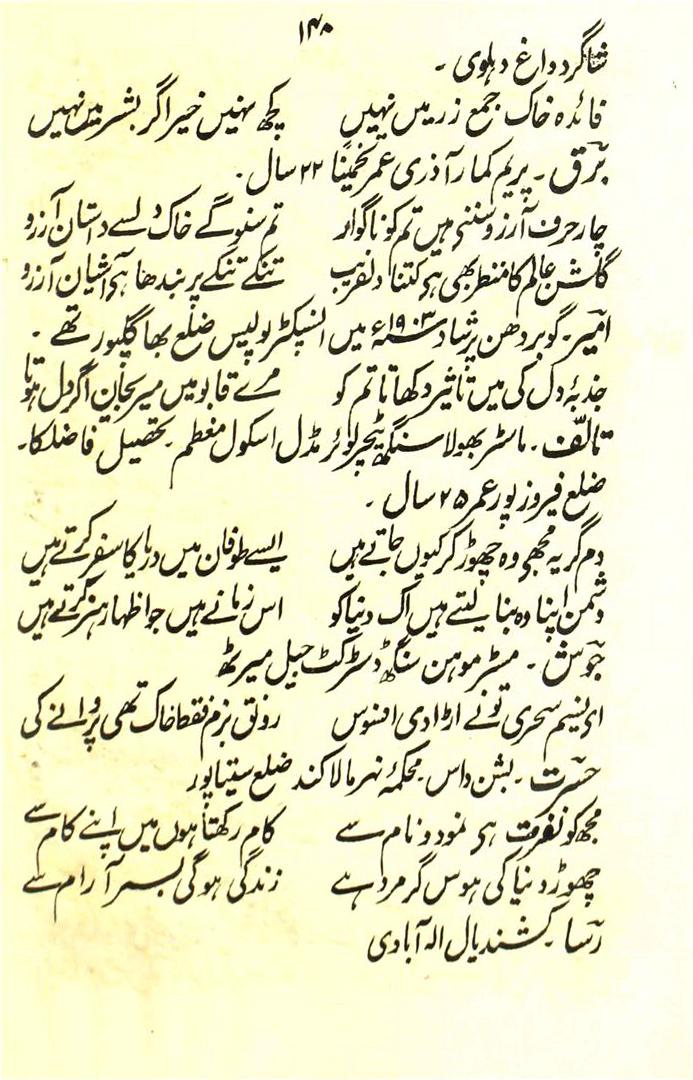 ۱۴۰
شاگرد داغ دہلوی ۔
فائدہ خاک جمع زر میں نہیں کچھ نہیں خیر اگر بشر میں نہیں
برق ۔ پریم کمار آذری عمر تخمیناً ۲۲ سال ۔
چار حرف آرزو سننی ہیں تم کو ناگوار تم سنو گے خاک دل سے داستان آرزو
گلشن عالم کا منظر بھی ہی کتنا دلفریب تنکے تنکے پر بندھا ہی آشیان آرزو
امیر ۔ گوبردھن پرشاد سنہ ۱۹۰۳ء میں انسپکٹر پولیس ضلع بھاگلپور تھے ۔
جذبۂ دل کی میں تاثیر دکھاتا تم کو مرے قابو میں میریجان اگر دل ہوتا
تالّف ۔ ماسٹر بھولا سنگھ ٹیچر لوئر مڈل اسکول معظم تحصیل فاضلکا ۔
ضلع فیروزپور عمر ۲۵ سال ۔
دم گریہ مجھی وہ چھوڑ کر کیوں جاتے ہیں ایسے طوفان میں دریا کا سفر کرتے ہیں
دشمن اپنا وہ بنا لیتے ہیں اک دنیا کو اس زمانے ہیں جو اظہار ہنر کرتے ہیں
جوش ۔ مسٹر موہن سنگھ ڈسٹرکٹ جیل میرٹھ
ای نسیم سحری تونے اڑا دی افسوس رونق بزم فقط خاک تھی پروانے کی
حسرت ۔ بشن داس ۔ محکمۂ نہر مالاکند ضلع سیتاپور
مجھ کو نفرت ہی نمود و نام سے کام رکھتا ہوں میں اپنے کام سے
چھوڑ دنیا کی ہوس گر مرد ہے زندگی ہوگی بسر آرام سے
رسا ۔ کشندیال الہ آبادی